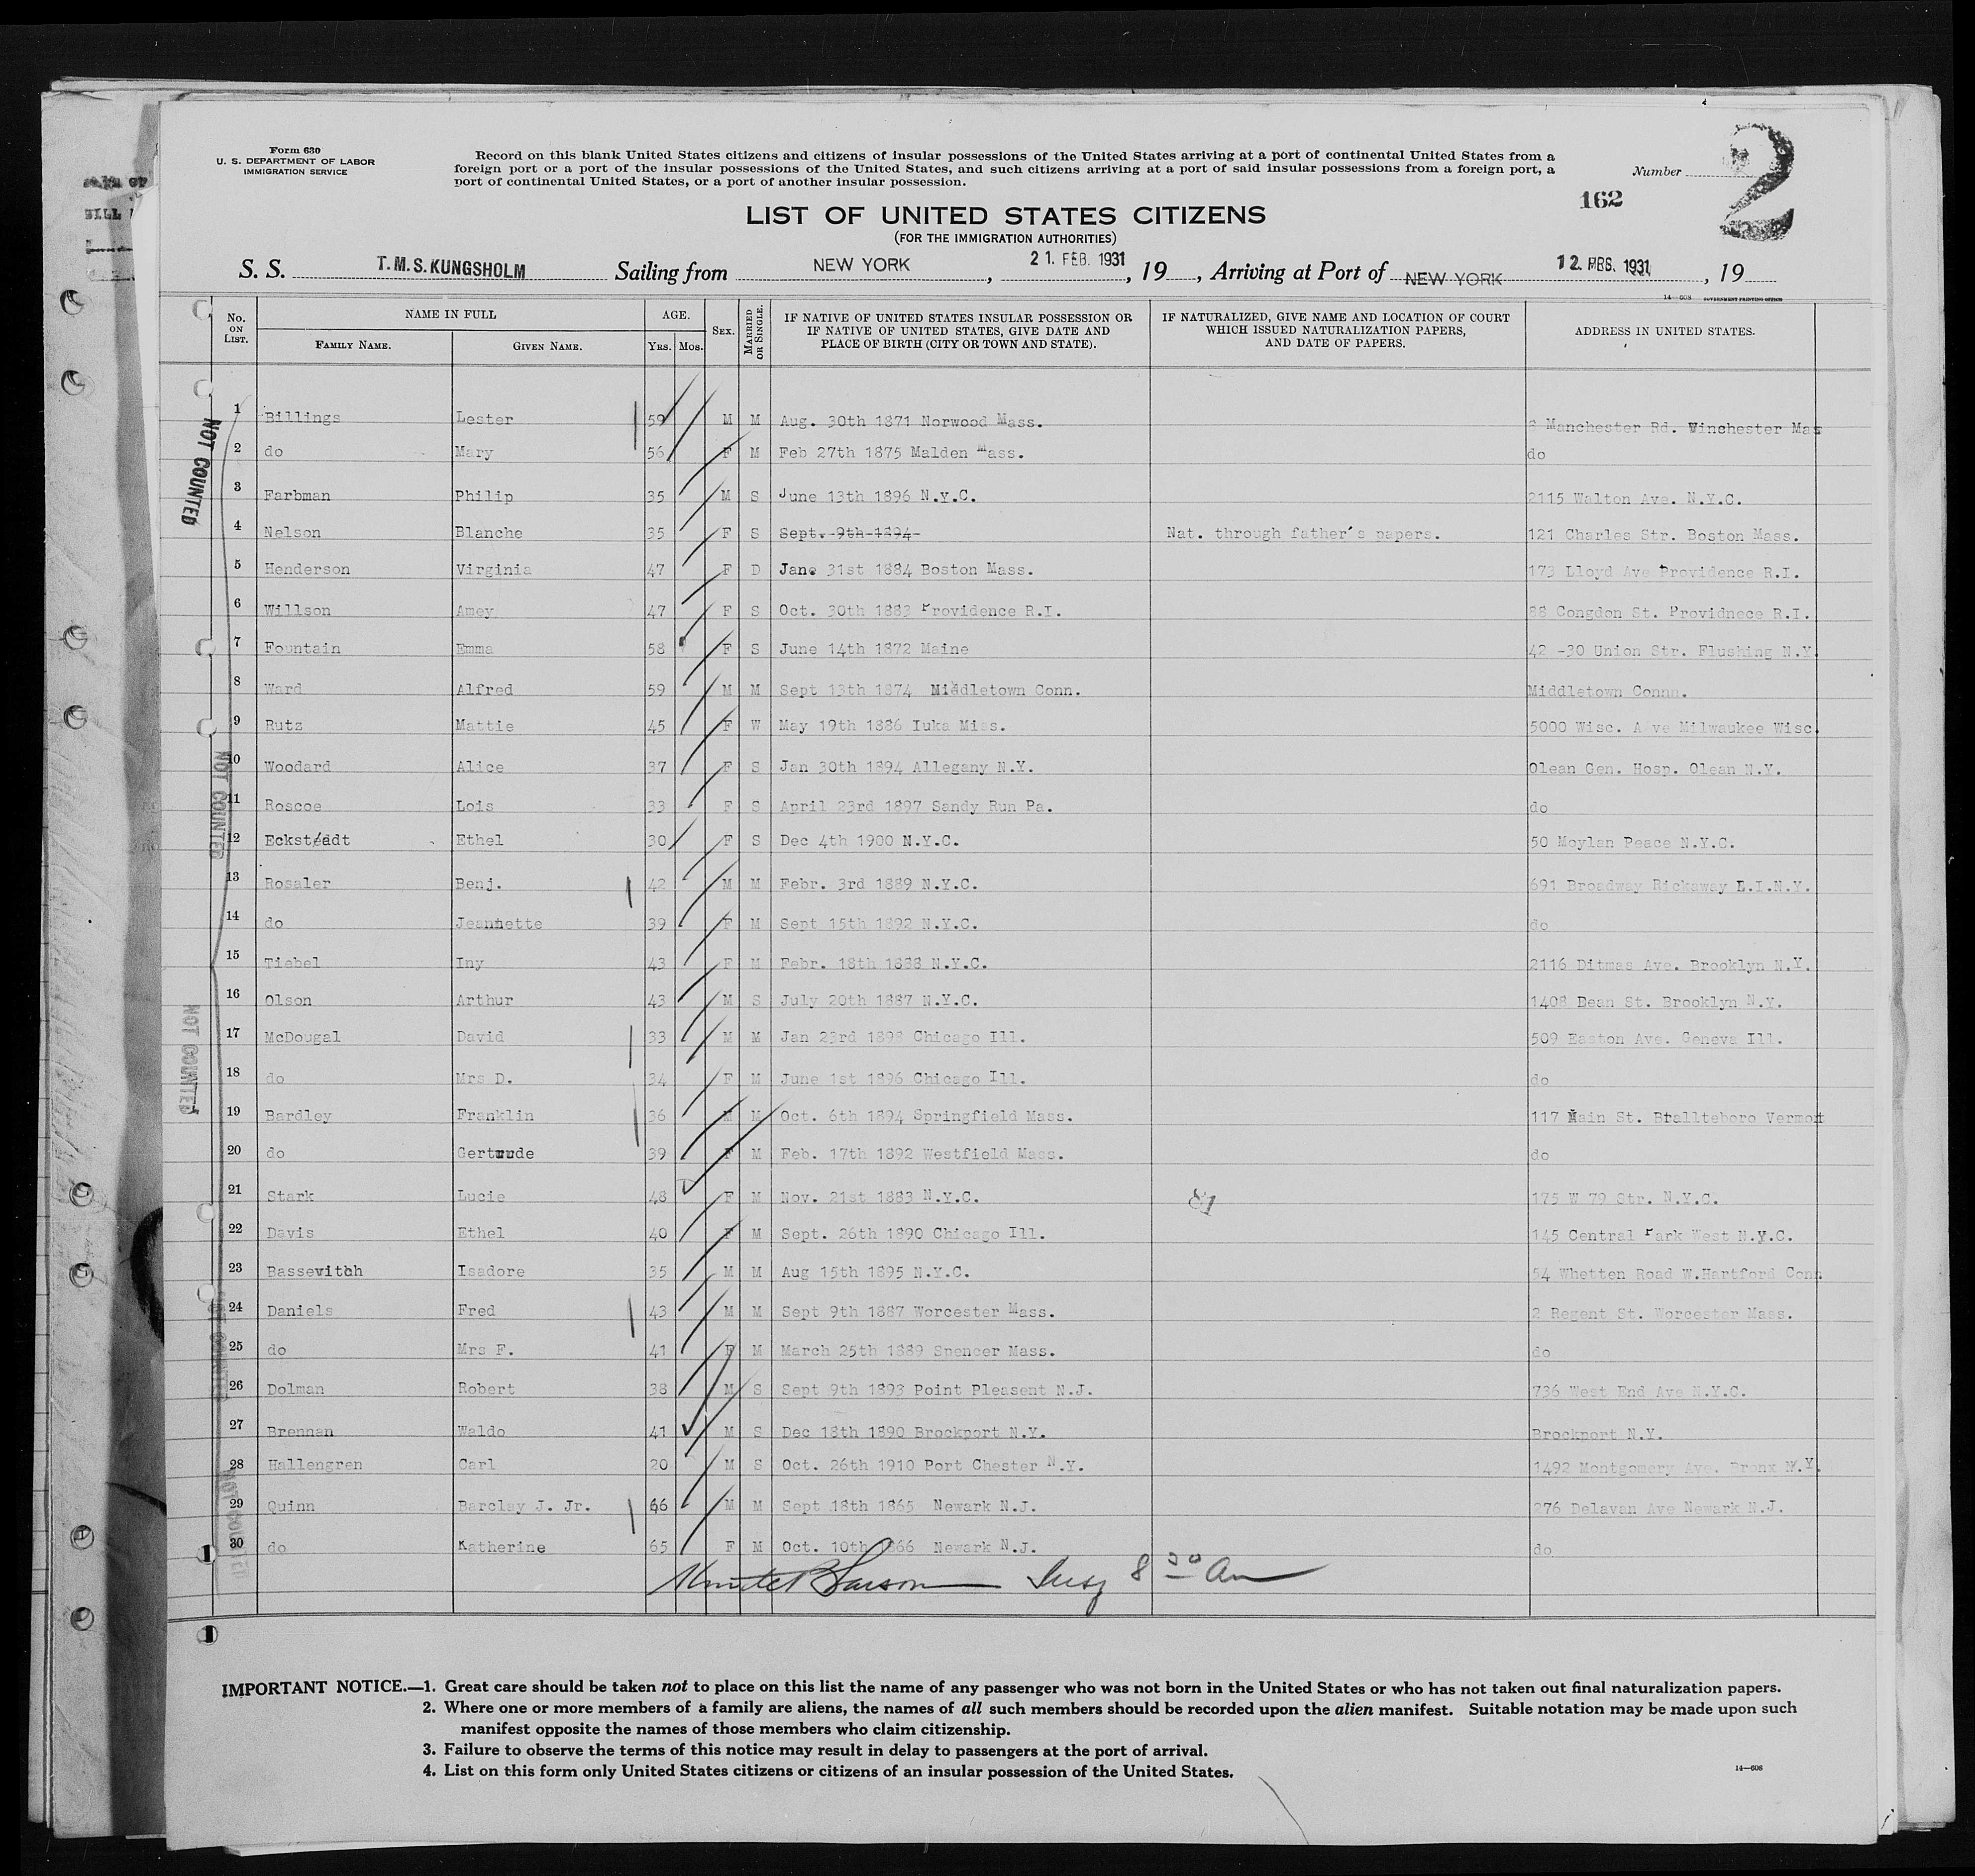 Form 630
U. S. DEPARTMENT OF LABOR
IMMIGRATION SERVICE
Record on this blank United States citizens and citizens of insular possessions of the United States arriving at a port of continental United States from a
foreign port or a port of the insular possessions of the United States, and such citizens arriving at a port of said insular possessions from a foreign port, a
port of continental United States, or a port of another insular possession.
Number
2
162
LIST OF UNITED STATES CITIZENS
(FOR THE IMMIGRATION AUTHORITIES)
S. S. T.M.S.KUNGSHOLM Sailing from NEW YORK, 21. FEB. 1931, 19, Arriving at Port of NEW YORK 12. 1931, 19
14—608 GOVERNMENT PRINTING OFFICE
No. ON LIST. NAME IN FULL FAMILY NAME. GIVEN NAME. AGE. YRS. MOS. SEX. MARRIED OR SINGLE. IF NATIVE OF UNITED STATES INSULAR POSSESSION OR IF NATIVE OF UNITED STATES, GIVE DATE AND PLACE OF BIRTH (CITY OR TOWN AND STATE). IF NATURALIZED, GIVE NAME AND LOCATION OF COURT WHICH ISSUED NATURALIZATION PAPERS, AND DATE OF PAPERS. ADDRESS IN UNITED STATES.
1 Billings Lester 59 M M Aug. 30th 1871 Norwood Mass. Manchester Rd. Winchester Mas
2 do Mary 56 F M Feb 27th 1875 Malden Mass. do
3 Farbman Philip 35 M S June 13th 1896 N.Y.C. 2115 Walton Ave. N.Y.C.
4 Nelson Blanche 35 F S Sept. 9th 1894 Nat. through father's papers. 121 Charles Str. Boston Mass.
5 Henderson Virginia 47 F D Jane 31st 1884 Boston Mass. 173 Lloyd Ave Providence R.I.
6 Willson Amey 47 F S Oct. 30th 1883 Providence R.I. 88 Congdon St. Providnece R.I.
7 Fountain Emma 58 F S June 14th 1872 Maine 42 -30 Union Str. Flushing N.Y.
8 Ward Alfred 59 M M Sept 13th 1874 Middletown Conn. Middletown Connn.
9 Rutz Mattie 45 F W May 19th 1886 Iuka Miss. 5000 Wisc. A ve Milwaukee Wisc.
10 Woodard Alice 37 F S Jan 30th 1894 Allegany N.Y. Olean Gen. Hosp. Olean N.Y.
11 Roscoe Lois 33 F S April 23rd 1897 Sandy Run Pa. do
12 Eckstädt Ethel 30 F S Dec 4th 1900 N.Y.C. 50 Moylan Peace N.Y.C.
13 Rosaler Benj. 42 M M Febr. 3rd 1889 N.Y.C. 691 Broadway Rickaway L.I.N.Y.
14 do Jeannette 39 F M Sept 15th 1892 N.Y.C. do
15 Tiebel Iny 43 F M Febr. 18th 1888 N.Y.C. 2116 Ditmas Ave. Brooklyn N.Y.
16 Olson Arthur 43 M S July 20th 1887 N.Y.C. 1408 Dean St. Brooklyn N.Y.
17 McDougal David 33 M M Jan 23rd 1898 Chicago Ill. 509 Easton Ave. Geneva Ill.
18 do Mrs D. 34 F M June 1st 1896 Chicago Ill. do
19 Bardley Franklin 36 M M Oct. 6th 1894 Springfield Mass. 117 Main St. Brallteboro Vermont
20 do Gertrude 39 F M Feb. 17th 1892 Westfield Mass. do
21 Stark Lucie 48 F M Nov. 21st 1883 N.Y.C. 81 175 W 79 Str. N.Y.C.
22 Davis Ethel 40 F M Sept. 26th 1890 Chicago Ill. 145 Central Park West N.Y.C.
23 Bassevitch Isadore 35 M M Aug 15th 1895 N.Y.C. 54 Whetten Road W.Hartford Conn
24 Daniels Fred 43 M M Sept 9th 1887 Worcester Mass. 2 Regent St. Worcester Mass.
25 do Mrs F. 41 F M March 25th 1889 Spencer Mass. do
26 Dolman Robert 38 M S Sept 9th 1893 Point Pleasent N.J. 736 West End Ave N.Y.C.
27 Brennan Waldo 41 M S Dec 18th 1890 Brockport N.Y. Brockport N.Y.
28 Hallengren Carl 20 M S Oct. 26th 1910 Port Chester N.Y. 1492 Montgomery Ave. Bronx N.Y.
29 Quinn Barclay J. Jr. 66 M M Sept 18th 1865 Newark N.J. 276 Delavan Ave Newark N.J.
30 do Katherine 65 F M Oct. 10th 1866 Newark N.J. do
NOT COUNTED
NOT COUNTED
NOT COUNTED
NOT COUNTED
NOT COUNTED
8 30 Am
IMPORTANT NOTICE.—1. Great care should be taken not to place on this list the name of any passenger who was not born in the United States or who has not taken out final naturalization papers.
2. Where one or more members of a family are aliens, the names of all such members should be recorded upon the alien manifest. Suitable notation may be made upon such
manifest opposite the names of those members who claim citizenship.
3. Failure to observe the terms of this notice may result in delay to passengers at the port of arrival.
4. List on this form only United States citizens or citizens of an insular possession of the United States.
14—608